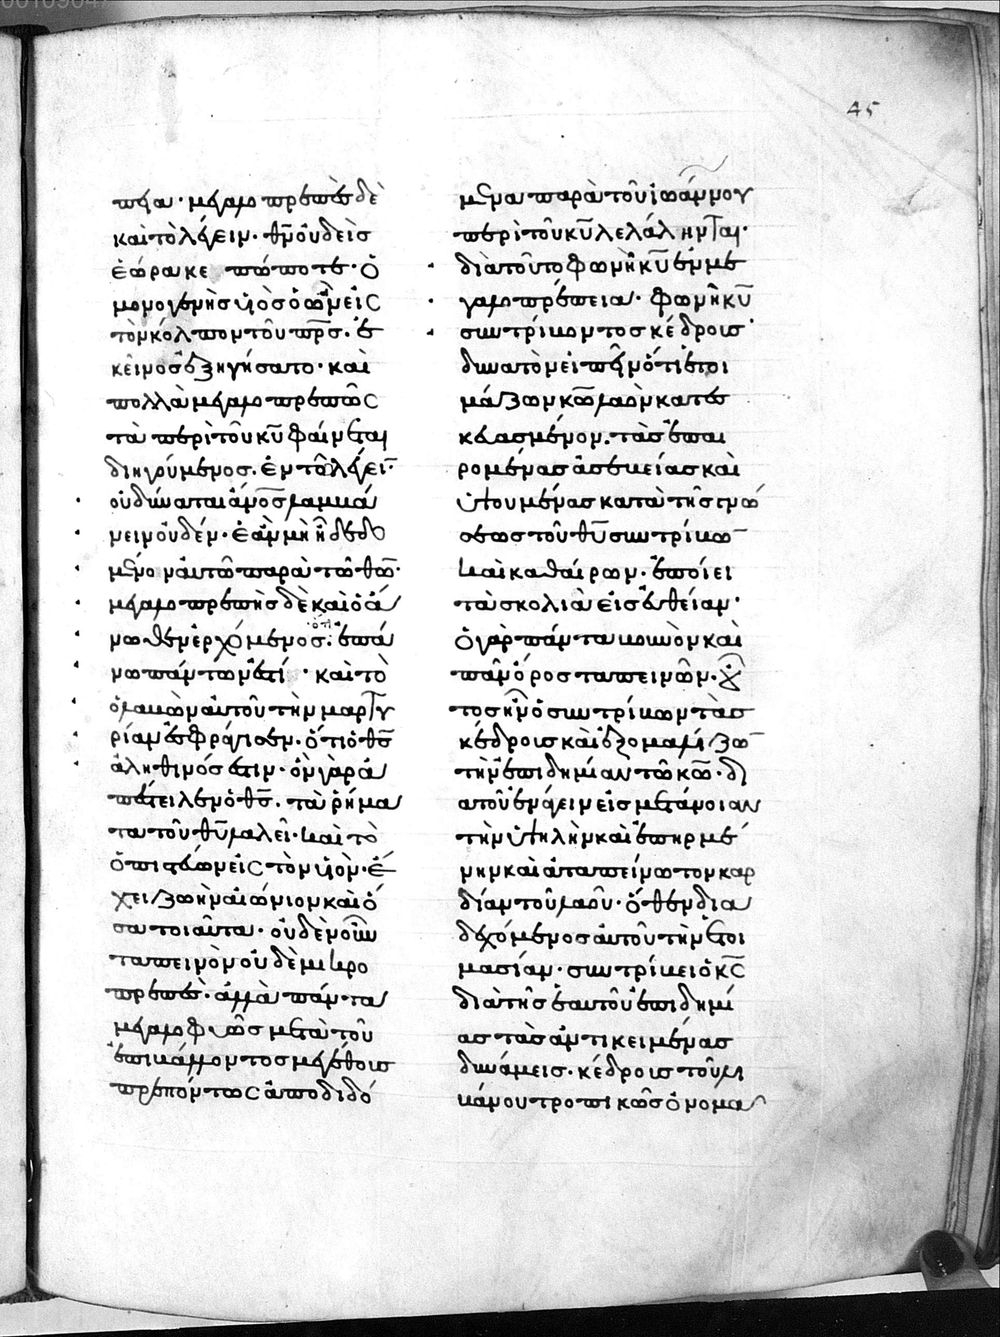 45
πεια· μεγαλοπρεπὲς δὲ
καὶ τὸ λέγειν· θν̄ οὐδεὶς
ἑώρακε πώποτε· ὁ
μονογενὴς υἱὸς ὁ ὢν εἰς
τὸν κόλπον τοῦ πρ̄ς· ἐ
κεῖνος ἐξηγήσατο· καὶ
πολλὰ μεγαλοπρεπῶς
τὰ περὶ τοῦ κῡ φαίνεται
διηγούμενος· ἐν τῶ λέγειν·
οὐ δύναται ἄνος λαμβά
νειν οὐδέν· ἐὰν μὴ ἦ δεδο
μένον αὐτῶ παρὰ τῶ θω̄·
μεγαλοπρεπὴς δὲ καὶ ὁ ἄ
νωθεν ἐρχόμενος· ὅτι ἐπά
νω πάντων ἐστί· καὶ τὸ
ὁ λαβὼν αὐτοῦ τὴν μαρτυ
ρίαν ἐσφράγισεν· ὅτι ὁ θς̄
ἀληθινός ἐστιν· ὃν γὰρ ἀ
πέστειλεν ὁ θς̄· τὰ ῥήμα
τα τοῦ θῡ λαλεῖ· καὶ τὸ
ὁ πιστεύων εἰς τὸν υἱὸν· ἔ
χει ζωὴν αἰώνιον καὶ ὅ
σα τοιαῦτα· οὐδὲν οὖν
ταπεινὸν οὐδὲ μικρο
πρεπὲς· ἀλλὰ πάντα
μεγαλοφυῶς μετὰ τοῦ
ἐπιβάλλοντος μεγέθους
πρεπόντως ἀποδιδό
μενα παρὰ τοῦ ἰωάννου
περὶ τοῦ κῡ λελάληνται·
διὰ τοῦτο φωνὴ κῡ ἐν με
γαλοπρέπεια· φωνὴ κῡ
συντρίβοντος κέδρους·
δυνατὸν εἰπεῖν ὅτι ἑτοι
μάζων κω̄ λαὸν κατεσ
κευασμένον· τὰς ἐπαι
ρομένας ἀσεβείας καὶ
ὑψουμένας κατὰ τῆς γνώ
σεως τοῦ θῡ συντρίβων
καὶ καθαίρων· ἐποίει
τὰ σκολιὰ εἰς εὐθείαν·
ὁ γὰρ πάντα βουνὸν καὶ
πᾶν ὄρος ταπεινῶν· οὗ
τος ἦν ὁ συντρίβων τὰς
κέδρους καὶ ἐξομαλίζων
τὴν ἐπιδημίαν τῶ κω̄· δι
α τοῦ ἐνάγειν εἰς μετάνοιαν
τὴν ὑψηλὴν καὶ ἐπηρμέ
νην καὶ ἀταπείνωτον καρ
δίαν τοῦ λαοῦ· ὅθεν δια
δεχόμενος αὐτοῦ τὴν ἑτοι
μασίαν· συντρίβει ὁ κς̄
διὰ τῆς ἑαυτοῦ ἐπιδημί
ας τὰς ἀντικειμένας
δυνάμεις· κέδρους τοῦ λι
βάνου τροπικῶς ὀνομα